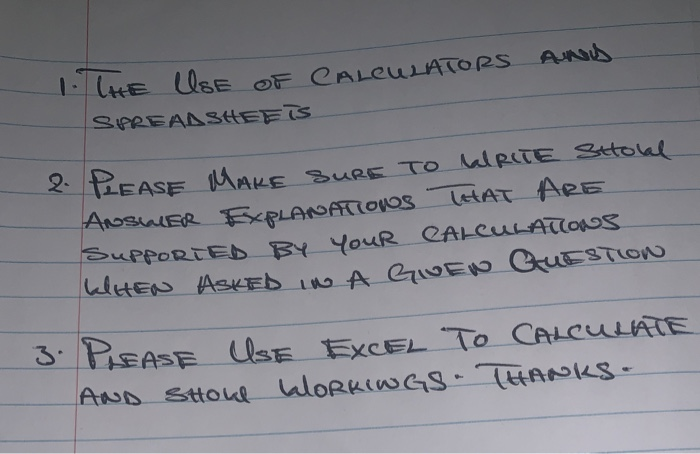 1. THE USE OF CALCULATORS AND
SPREADSHEETS
2. PLEASE MAKE SURE TO WRITE SHOW
ANSWER EXPLANATIONS THAT ARE
SUPPORTED BY YOUR CALCULATIONS
WHEN ASKED IN A GIVEN QUESTION
3. PLEASE USE EXCEL TO CALCULATE
AND SHOW WORKINGS. THANKS.